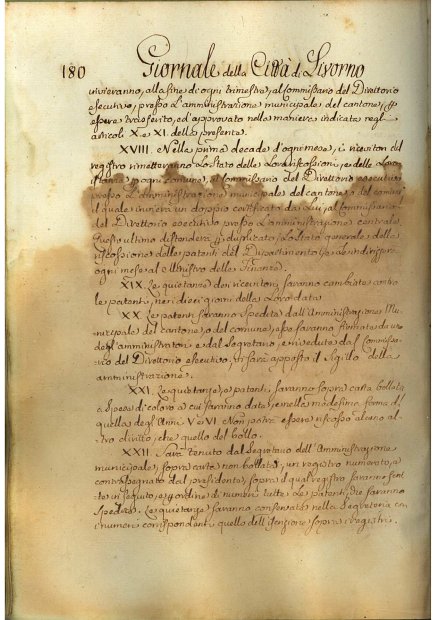 180 Giornale della Città di Livorno
invieranno, alla fine di ogni trimestre, al Commissario del Direttorio
esecutivo, presso l'amministrazione municipale del cantone, p
essere trasferito, ed approvato nella maniera indicata negli
articoli X. e XI. della presente.
XVIII. Nella prima decade d'ogni mese, i ricevitori del
registro rimetteranno lo stato delle loro riscossioni, e delle loro
in ogni comune, al Commissario del Direttorio esecutivo
presso l'amministrazione municipale del cantone, o del comune
il quale invierà un doppio certificato da lui, al Commissario
del Direttorio esecutivo presso l'amministrazione centrale.
Questo ultimo distenderà p duplicata lo stato generale della
riscossione delle patenti del Dipartimento, e lo indirizzerà
ogni mese al Ministro delle Finanze.
XIX. Le quietanze dei ricevitori saranno cambiate contro
le patenti, nei dieci giorni della loro data.
XX. Le patenti saranno spedite dall'Amministrazione Mu-
nicipale del cantone, o del comune, esse saranno firmate da uno
degl'amministratori e dal Segretario, e rivedute dal Commissa-
rio del Direttorio esecutivo, vi sarà apposto il Sigillo della
amministrazione.
XXI. Le quietanze, e patenti saranno sopra carta bollata
a spese di coloro a cui saranno date, e nella medesima forma di
quella degl'Anni V. e VI. Non potrà essere riscosso alcun al-
tro diritto, che quello del bollo.
XXII. Sarà tenuto dal Segretario dell'Amministrazione
municipale, sopra carta non bollata, un registro numerato, e
contrassegnato dal presidente, sopra il quale registro saranno scrit-
te in seguito, e p ordine di numeri tutte le patenti, che saranno
spedite. Le quietanze saranno conservate nella Segreteria con
i numeri corrispondenti a quello dell'iscrizione sopra i registri.